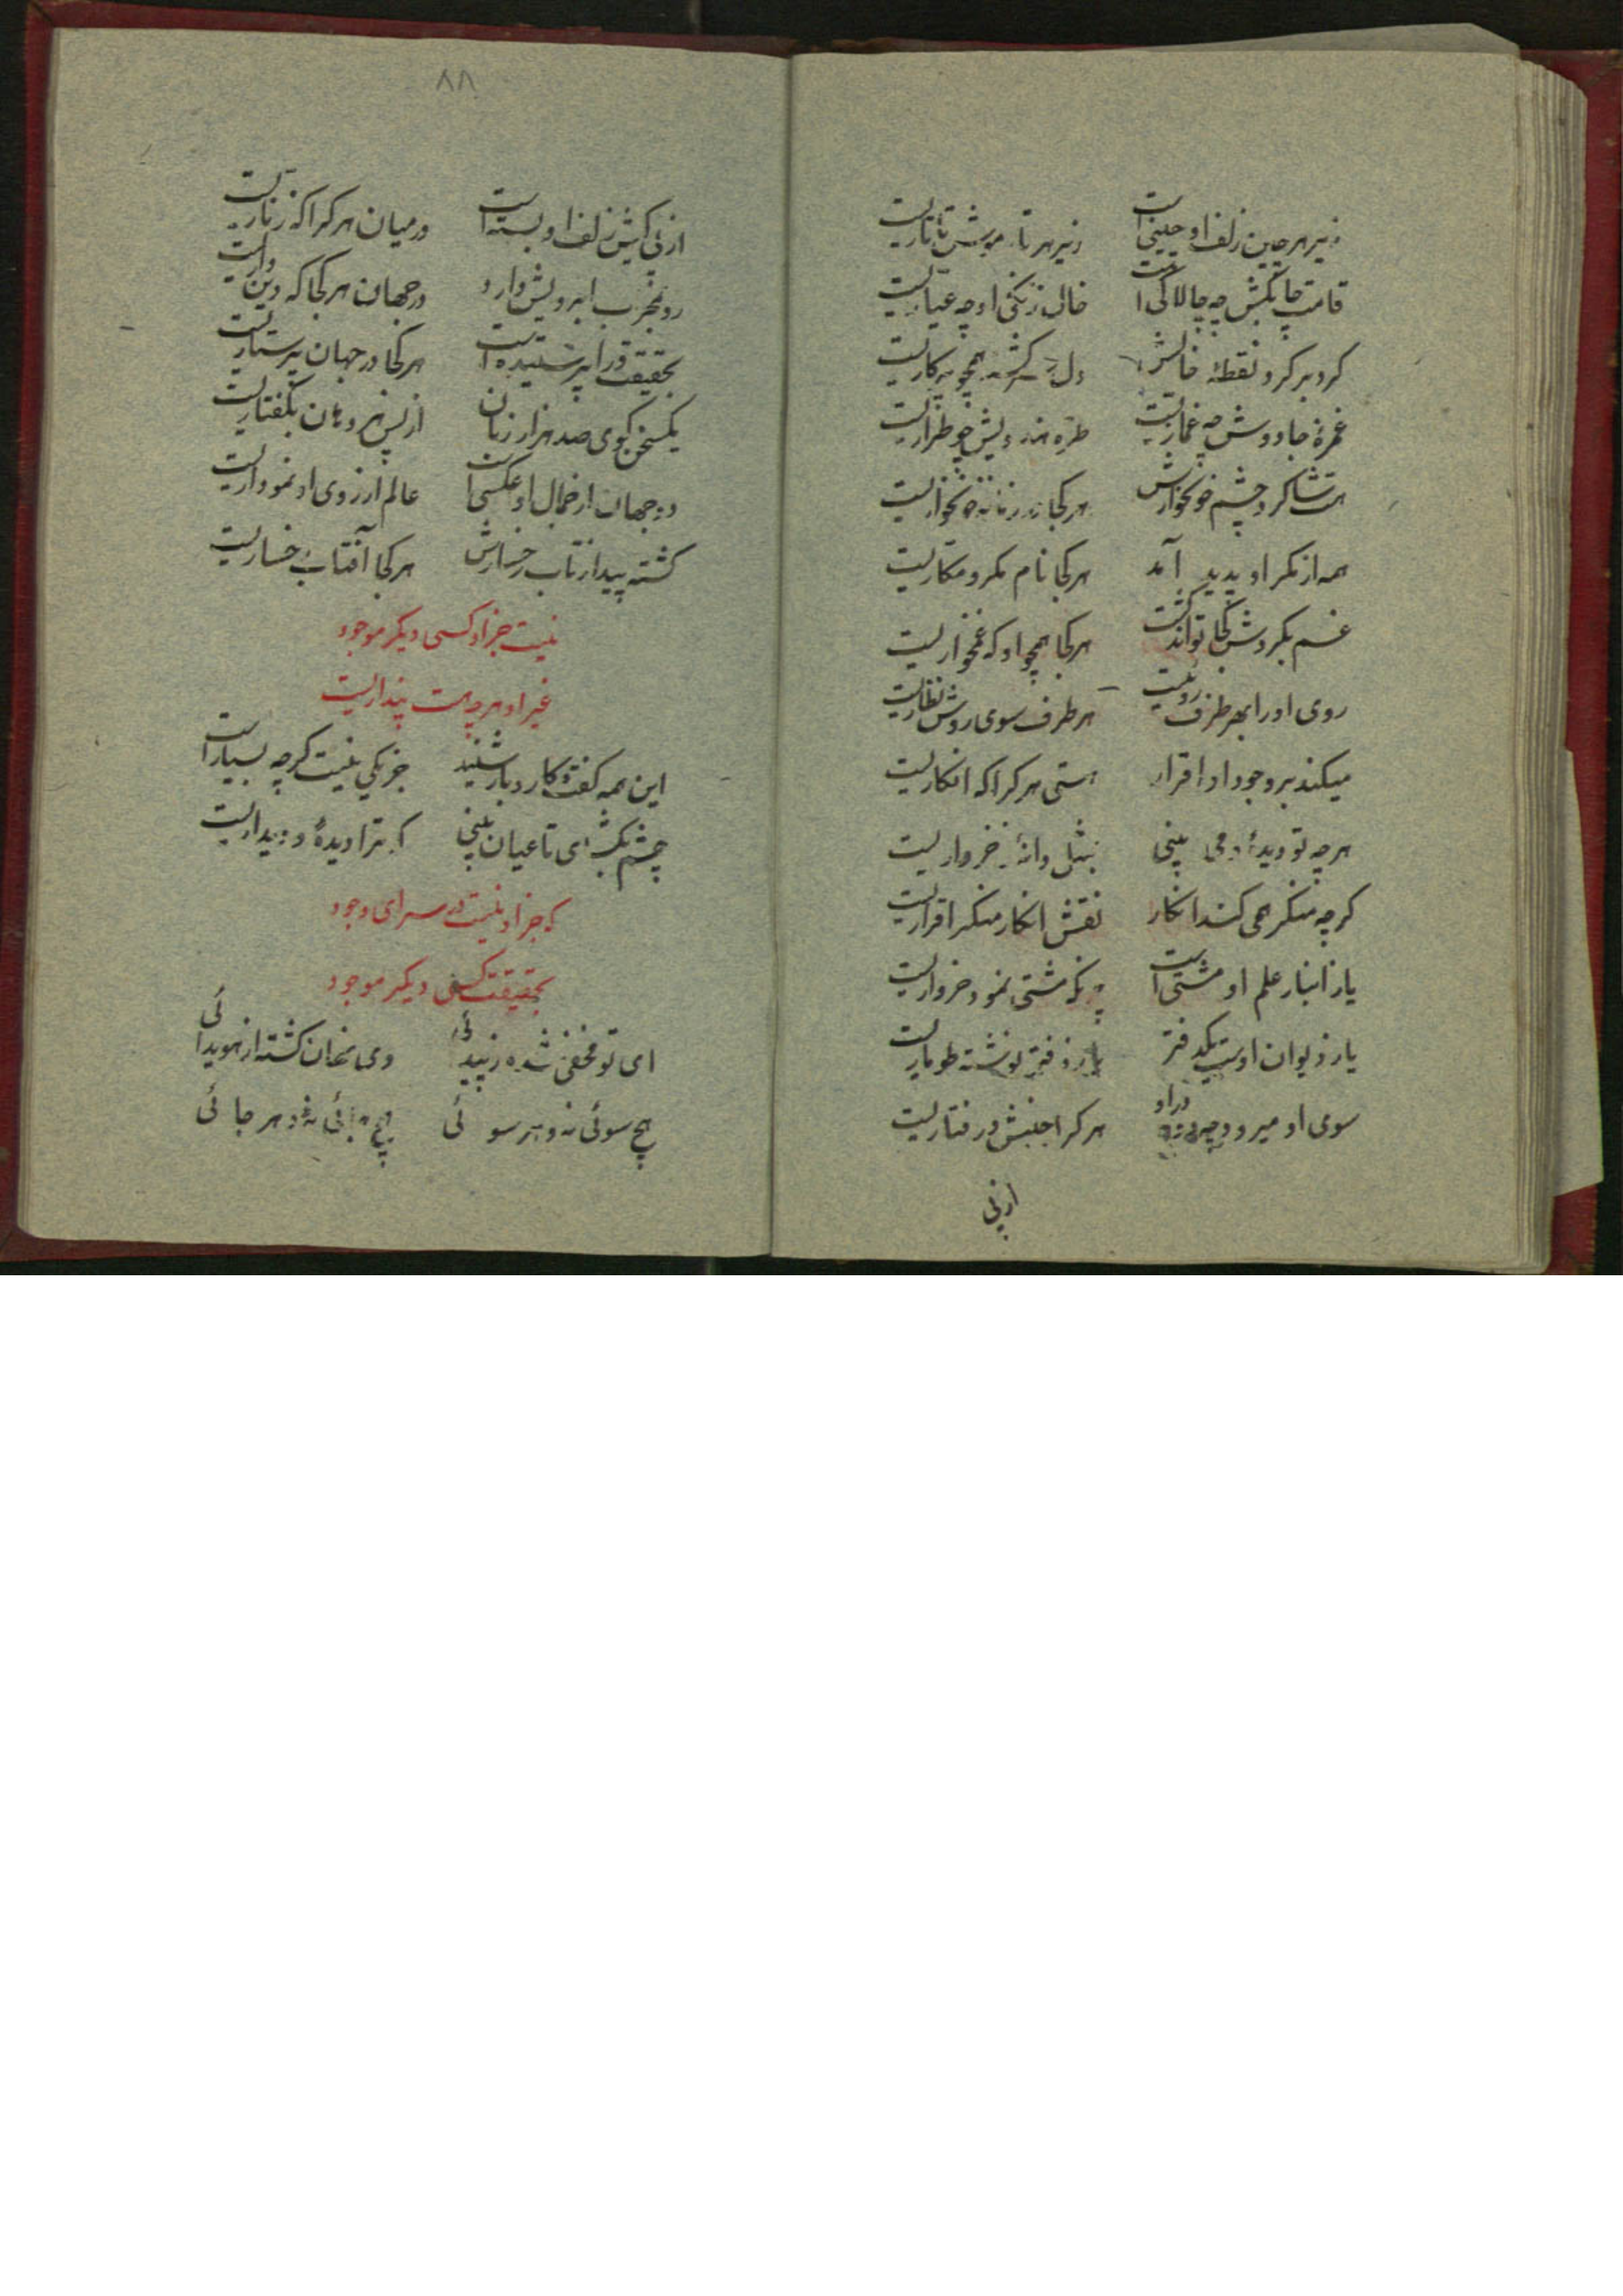 زیر هر چین زلف او چینی است
زیر هر تار مویش تاتاریست
قامت چابکش چه چالاکی است
خال زنگی او چه عیاریست
گرد بر گرد نقطهٔ خالش
دل سرگشته همچو پرگاریست
غمزهٔ جادوش چه غمازیست
طره هندویش چو طراریست
هست شاگرد چشم خونخوارش
هر کجا در زمانه خونخواریست
همه از مکر او پدید آمد
هر کجا نام مکر و مکاریست
غم بگردش کجا تواند گشت
هر کجا همچو او که غمخواریست
روی او را بهر طرف روئیست
هر طرف سوی روش نظاریست
میکند بر وجود او اقرار
هستی هر کرا که انکاریست
هر چه تو دیدهٔ و می بینی
بمثل دانهٔ ز خرواریست
گرچه منکر همی کند انکار
نقش انکار منکر اقراریست
یا ز انبار علم او مشتی است
که مشتی نمود خرواریست
یا ز دیوان اوست یکدفتر
یا ز دفتر نوشته طوماریست
سوی او میرود
هر کرا جنبش و رفتاریست
از پی
۸۸
از پی کیش زلف او بسته است
در میان هر کرا که زناریست
رو بمحراب ابرویش دارد
در جهان هر کجا که دینداریست
بحقیقت ورا پرستیده است
هر کجا در جهان پرستاریست
یکسخن گوی صد هزار زبان
از پس هر دهان بگفتاریست
دو جهان از جمال او عکسی است
عالم از روی او نموداریست
گشته پیدا ز تاب رخسارش
هر کجا آفتاب رخساریست
نیست جز او کسی دیگر موجود
غیر او هر چه هست پنداریست
این همه گفت و کار و بار شنید
جز یکی نیست گرچه بسیار است
چشم بگشای تا عیان بینی
که ترا دیدهٔ و دیداریست
که جز او نیست در سرای وجود
بحقیقت کسی دیگر موجود
ای تو مخفی شده ز پیدائی
وی نهان گشته از هویدائی
هیچ سوئی نه و بهر سوئی
هیچ جائی نه و هر جائی